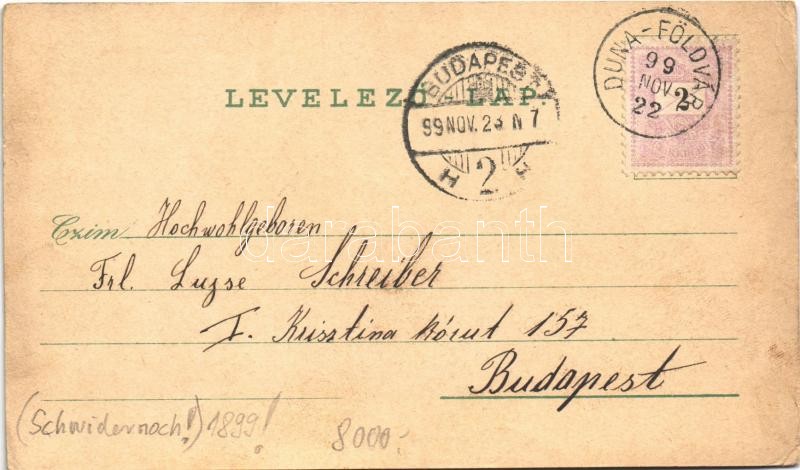 LEVELEZŐ-LAP.
DUNA-FÖLDVÁR
99
NOV.
22
2
BUDAPEST
99 NOV. 23 N 7
2
Czim Hochwohlgeboren
darabanth
Frl. Luzse Schreiber
I. Krisztina körut 157
Budapest
(Schwidernoch!) 1899!
8000.-